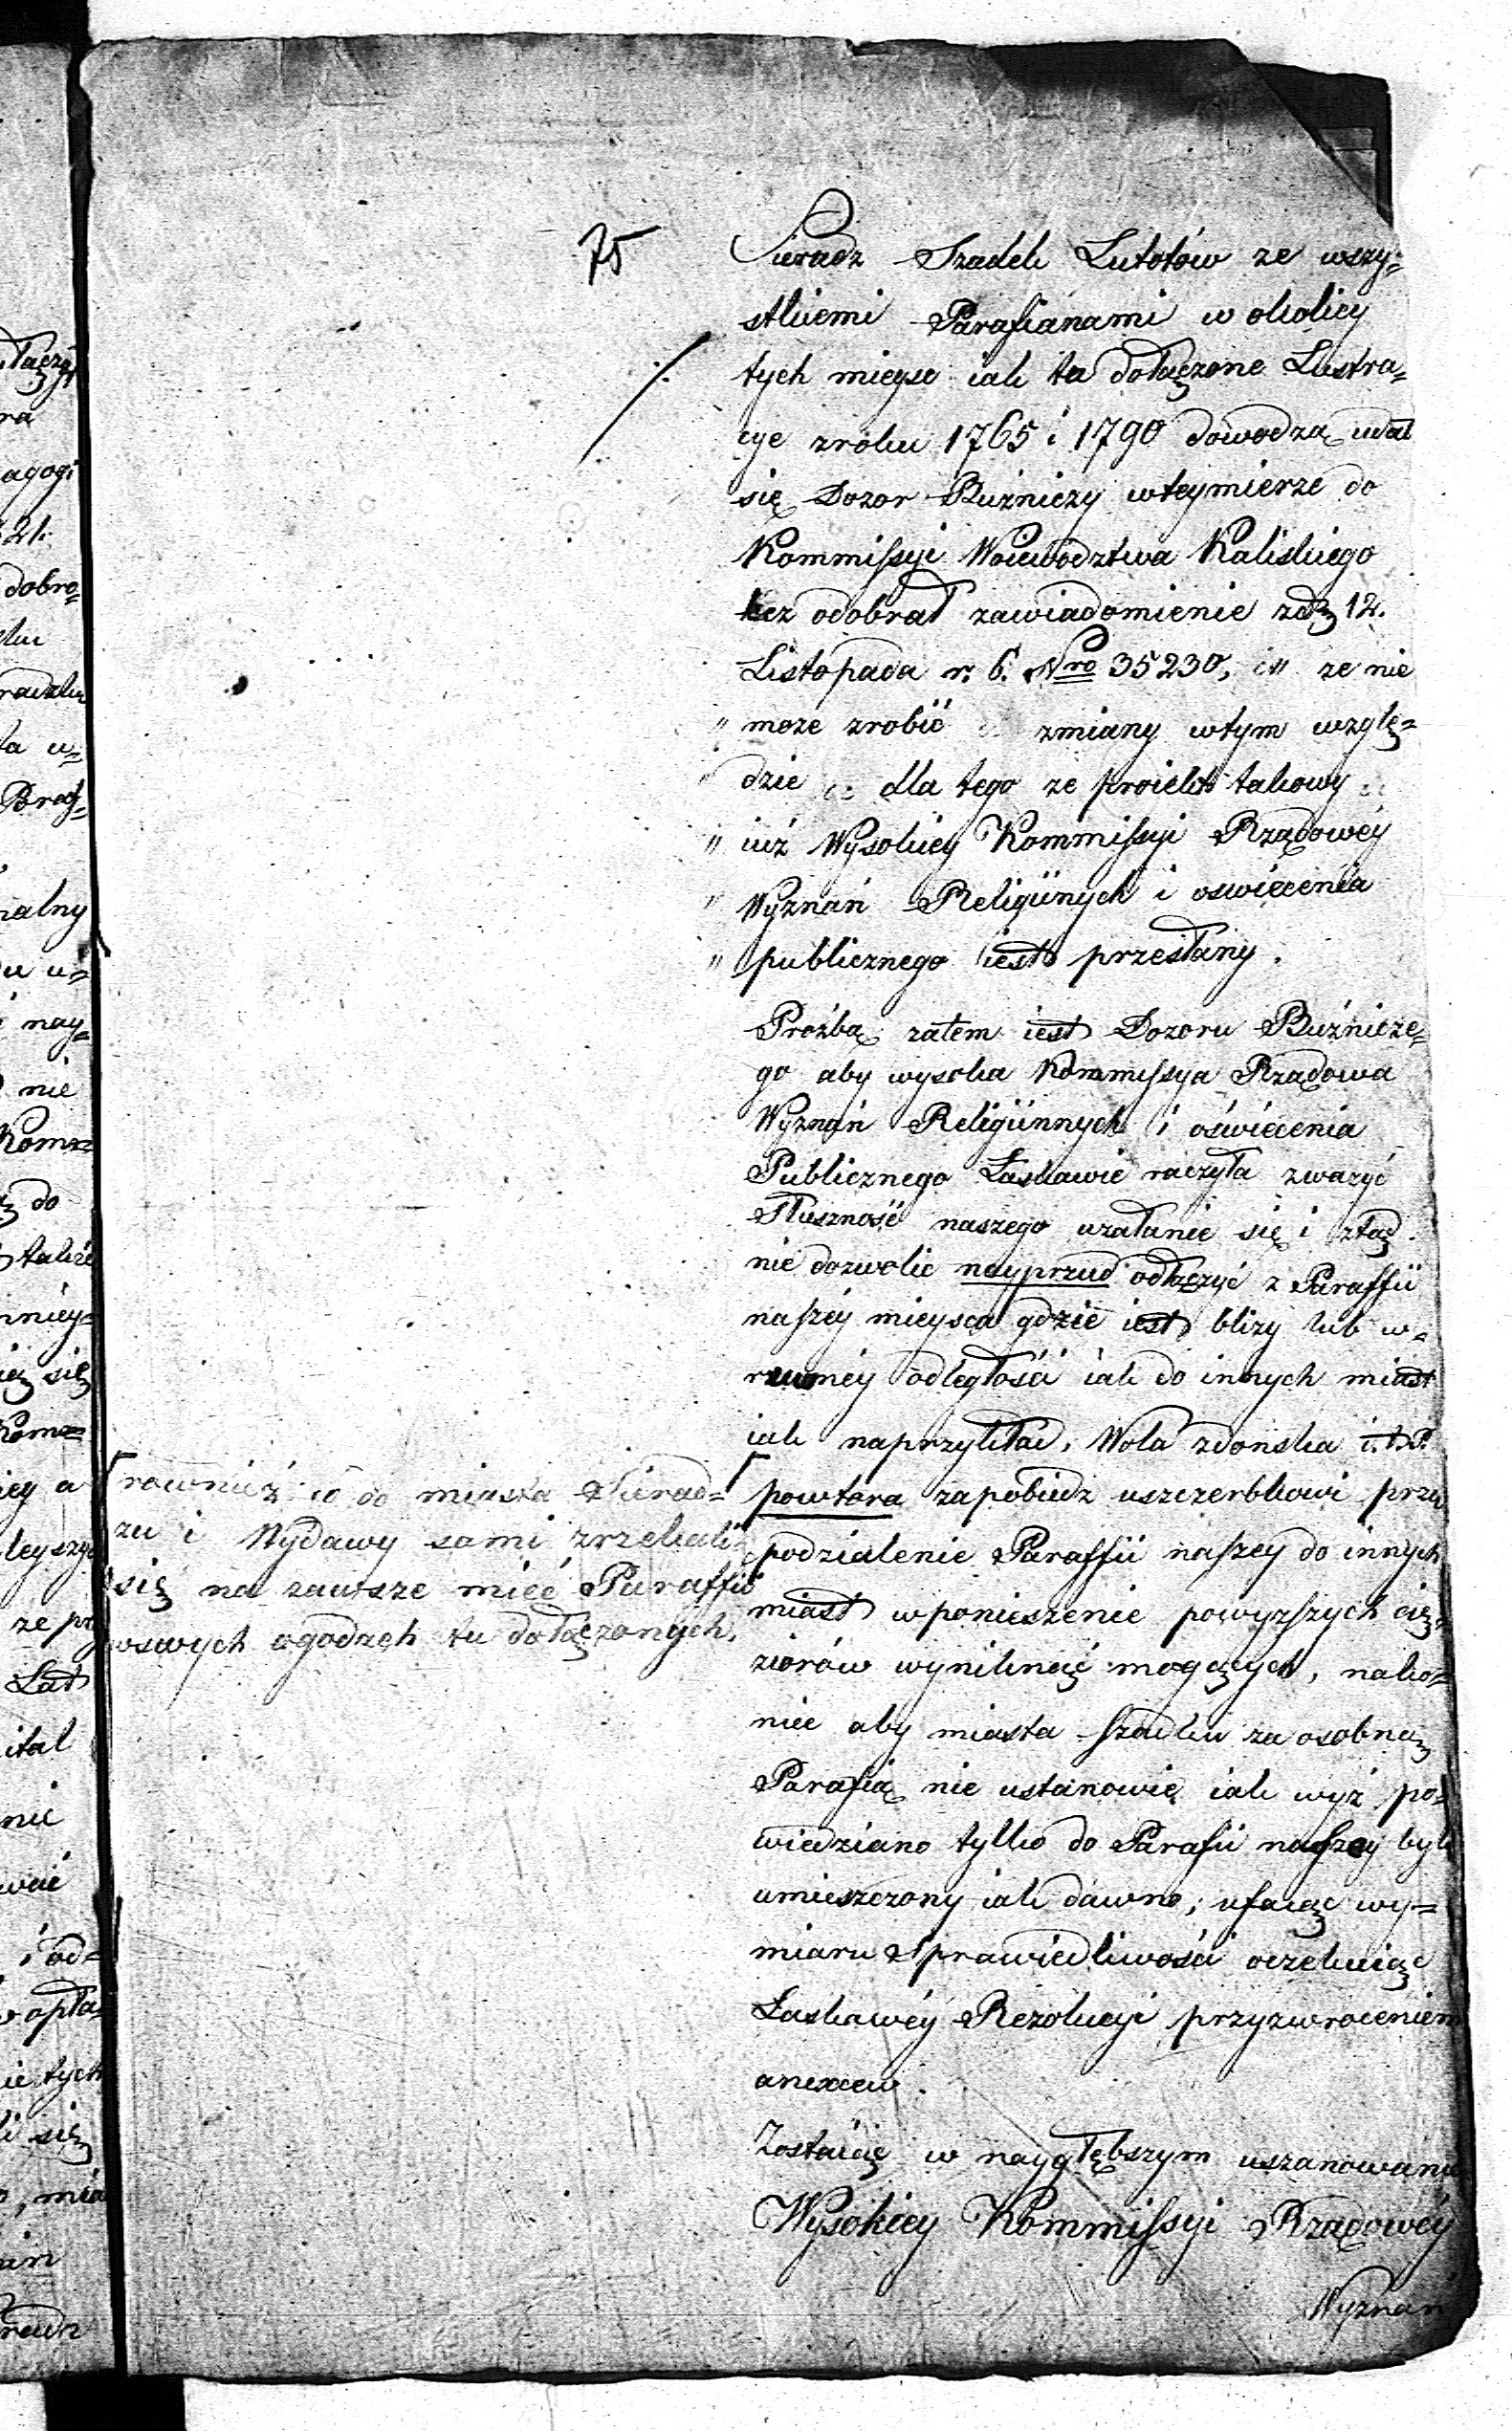 75
Sieradz Szadek Lututów ze wszy=
stkiemi Parafianami w okolicy
tych mieysc iak tu dołączone Lustra=
cye zroku 1765 i 1790 dowodzą udał
się Dozor Buźniczy wteymierze do
Kommissyi Woiewodztwa Kaliskiego
lecz odobrał zawiadomienie zdn 12.
Listopada r. b. Nro 35230, i" ze nie
" moze zrobić zmiany wtym wzglę=
" dzie dla tego ze proiekt takowy
" iuż Wysokiey Kommissyi Rządowéy
" Wyznań Religiinych i oswiecenia
" publicznego iest przesłany.
Proźbą zatem iest Dozoru Buźnicze=
go aby wysoka Kommissya Rządowa
Wyznań Religiinnych i oświecenia
Publicznego Łaskawie raczyła zwazyć
Słuszność naszego uzałanie się i ztąd
nie dozwolic nayprzud odłączyć z Paraffii
naszéy mieysca gdzie iest blizy lub w=
rowméy odległości iak do innych miast
iak naprzykład, Wola zdonska i.t.d.
powtóra zapobiedz uszczerbkowi przez
podzialenie Paraffii naszey do innych
miast wponieszenie powyzszych cię=
ziorów wyniknąć mogących, nako=
niec aby miasta Szadku za osobną
Parafią nie ustanowic iak wyż po=
wiedziano tylko do Parafii naszey był
umieszczony iak dawno, ufaiąc wy=
miaru Sprawiedliwości oczekuiąc
Łaskawéy Rezolucyi przyzwroceniem
anexów.
Zostaiąc w naygłębszym uszanowaniu
Wysokiey Kommissyi Rządowéy
Wyznań
równiéż iż do miasta Sierad=
zu i Wydawy sami zrzekali
się na zawsze mieć Paraffii
wswych ogodzch tu dołączonych.